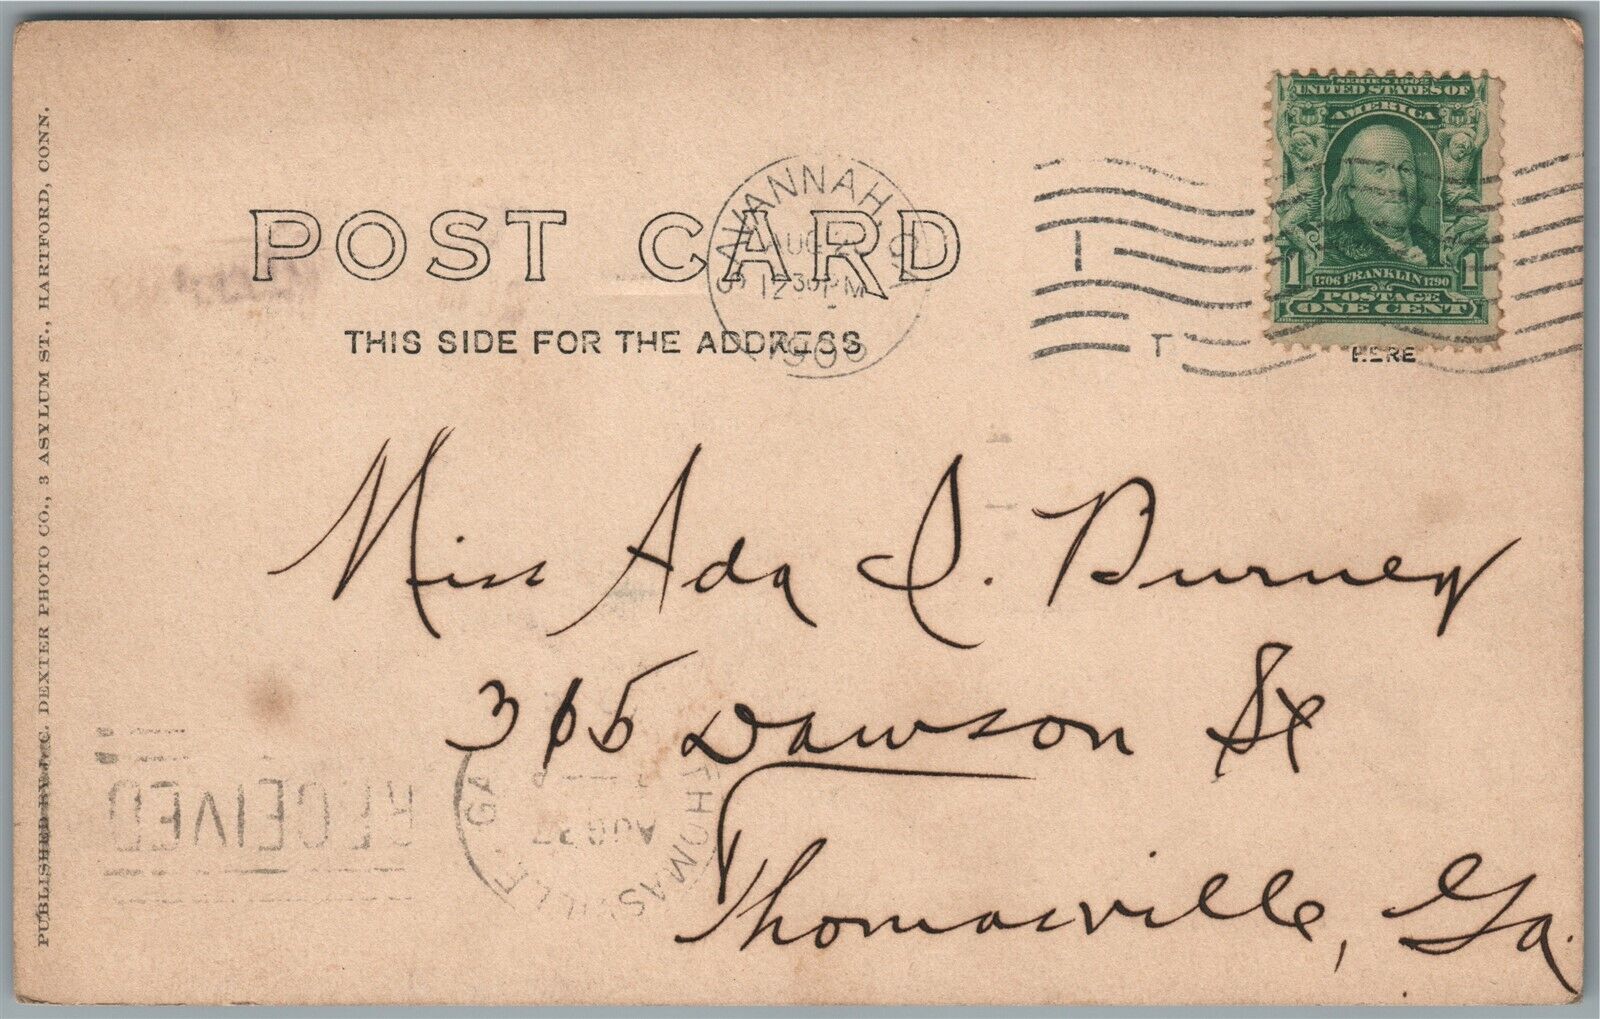 SERIES 1902
UNITED STATES OF
AMERICA
1 1706 FRANKLIN 1790 1
POSTAGE
ONE CENT
HERE
SAVANNAH
AUG
12 30 PM
190
POST CARD
THIS SIDE FOR THE ADDRESS
Miss Ada I. Burney
365 Dawson St
Thomasville, Ga.
RECEIVED
THOMASVILLE GA
AUG 27
PUBLISHED BY C. DEXTER PHOTO CO., 3 ASYLUM ST., HARTFORD, CONN.